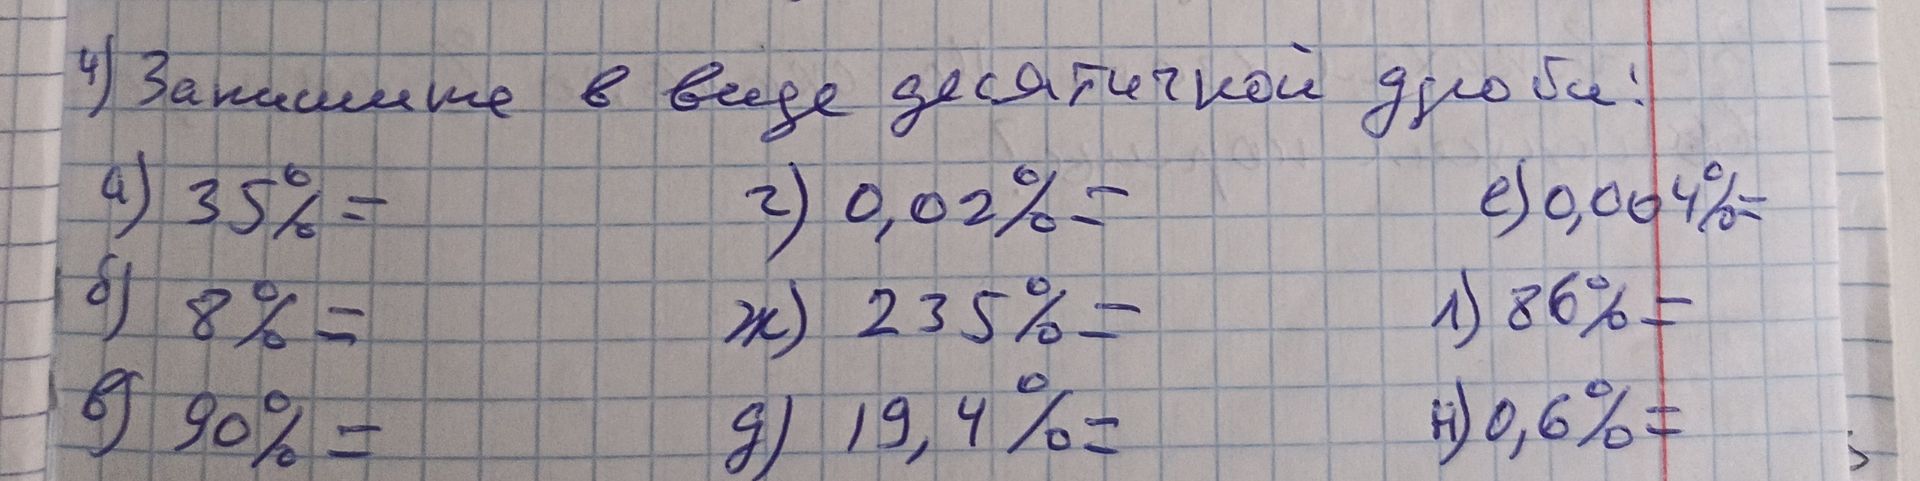 4) Запишите в виде десятичной дроби:
а) 35%= г) 0,02%= е) 0,004%=
б) 8%= ж) 235%= л) 86%=
в) 90%= д) 19,4%= н) 0,6%=